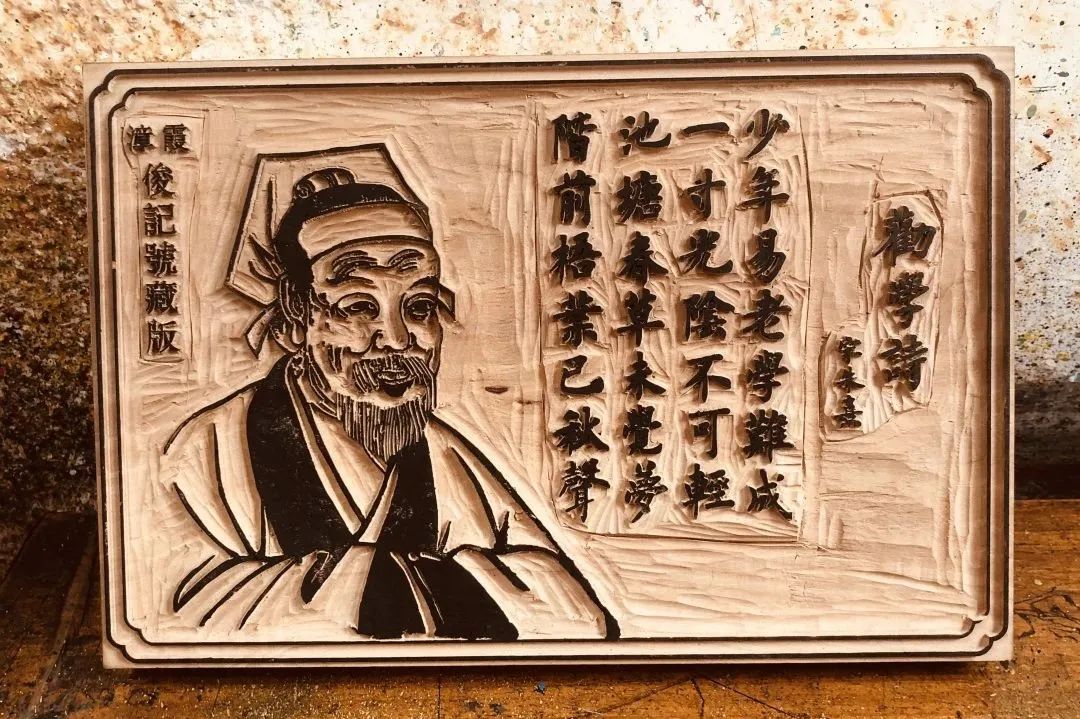 勸學詩
宋朱熹
少年易老學難成
一寸光陰不可輕
池塘春草未覺夢
階前梧葉已秋聲
霞漳
俊記號藏版